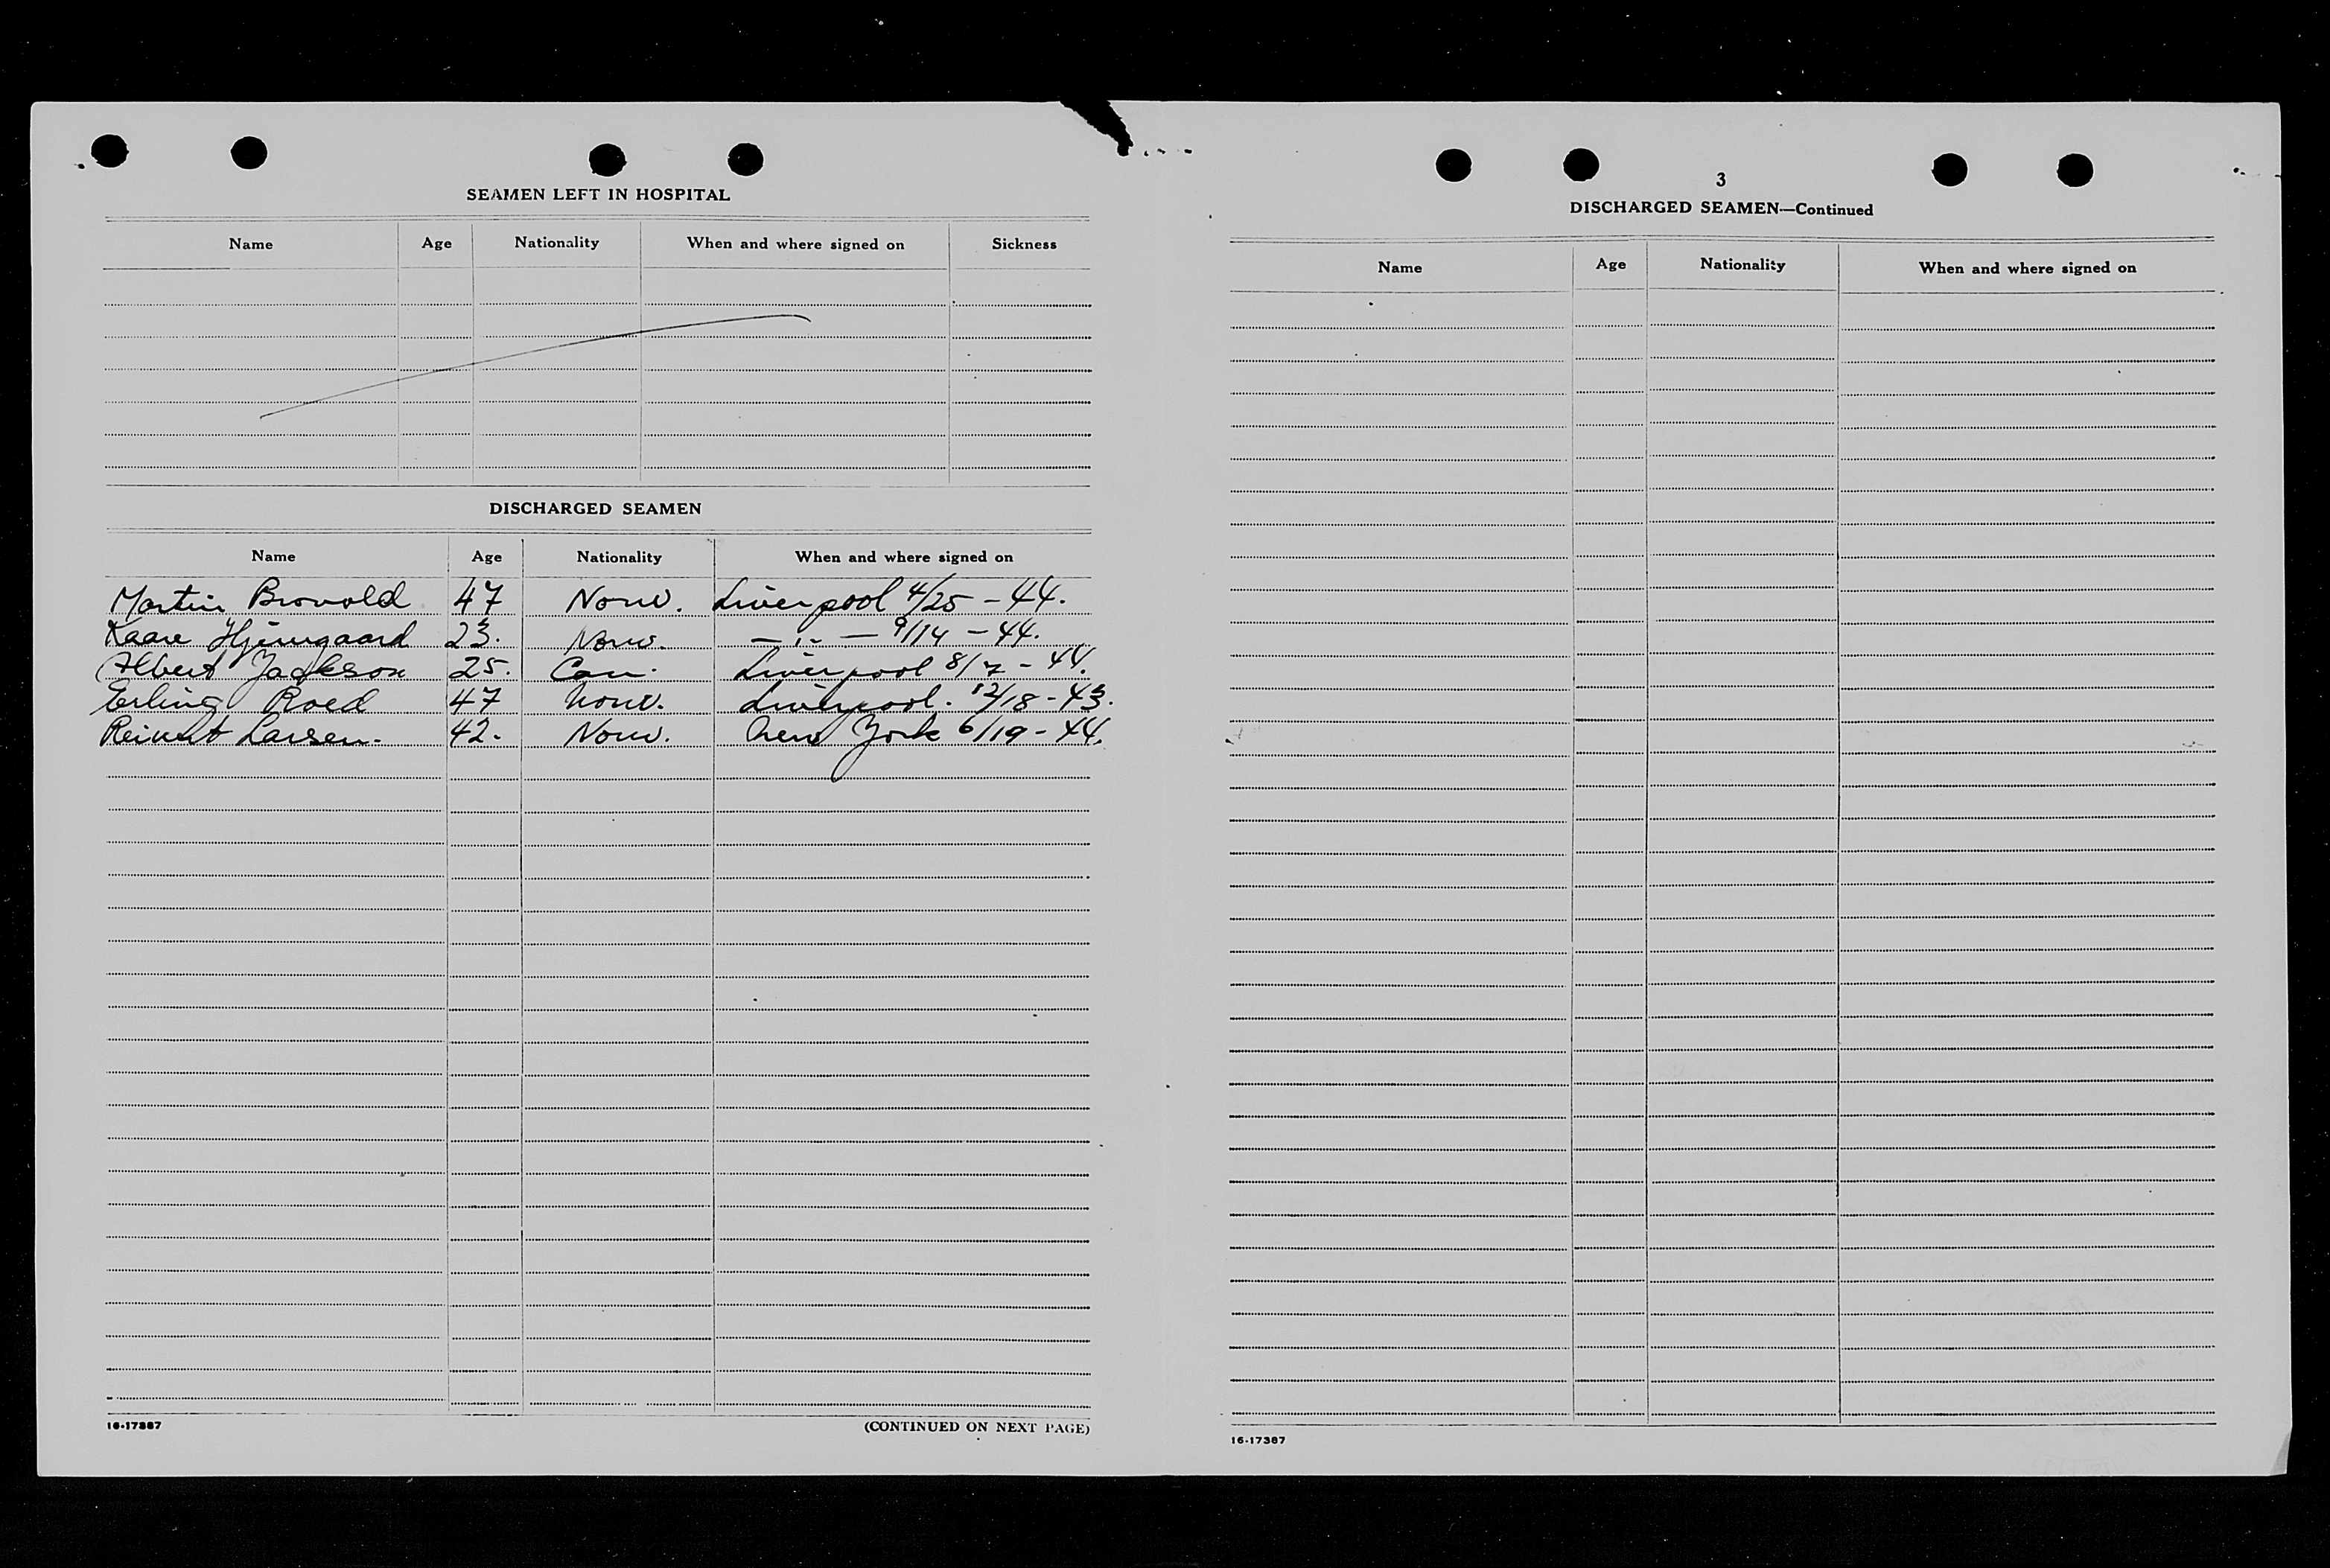 SEAMEN LEFT IN HOSPITAL
Name Age Nationality When and where signed on Sickness
DISCHARGED SEAMEN
Name Age Nationality When and where signed on
Martin Brovold 47 Norw. Liverpool 4/25 - 44.
Kaare 23. Norw. — " — 9/14 - 44.
Albert Jackson 25. Can. Liverpool 8/7 - 44.
Erling Roed 47 Norw. Liverpool. 12/18 - 43.
Reinert Larsen. 42. Norw. New York 6/19 - 44.
16-17387 (CONTINUED ON NEXT PAGE)
3
DISCHARGED SEAMEN—Continued
Name Age Nationality When and where signed on
16-17387